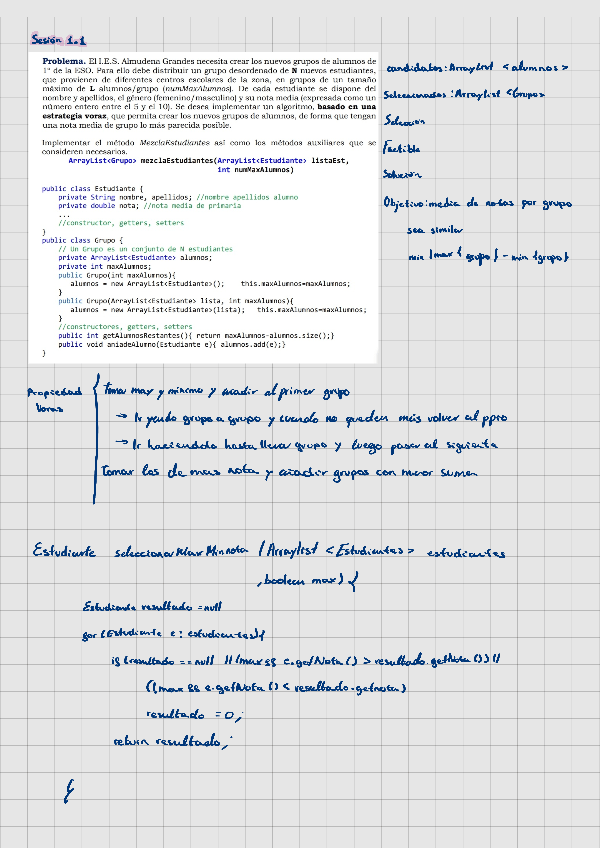 Sesión 1.1
Problema. El I.E.S. Almudena Grandes necesita crear los nuevos grupos de alumnos de
1º de la ESO. Para ello debe distribuir un grupo desordenado de N nuevos estudiantes,
que provienen de diferentes centros escolares de la zona, en grupos de un tamaño
máximo de L alumnos/grupo (numMaxAlumnos). De cada estudiante se dispone del
nombre y apellidos, el género (femenino/masculino) y su nota media (expresada como un
número entero entre el 5 y el 10). Se desea implementar un algoritmo, basado en una
estrategia voraz, que permita crear los nuevos grupos de alumnos, de forma que tengan
una nota media de grupo lo más parecida posible.
Implementar el método MezclaEstudiantes así como los métodos auxiliares que se
consideren necesarios.
ArrayList<Grupo> mezclaEstudiantes(ArrayList<Estudiante> listaEst,
int numMaxAlumnos)
public class Estudiante {
private String nombre, apellidos; //nombre apellidos alumno
private double nota; //nota media de primaria
...
//constructor, getters, setters
}
public class Grupo {
// Un Grupo es un conjunto de N estudiantes
private ArrayList<Estudiante> alumnos;
private int maxAlumnos;
public Grupo(int maxAlumnos){
alumnos = new ArrayList<Estudiante>(); this.maxAlumnos=maxAlumnos;
}
public Grupo(ArrayList<Estudiante> lista, int maxAlumnos){
alumnos = new ArrayList<Estudiante>(lista); this.maxAlumnos=maxAlumnos;
}
//constructores, getters, setters
public int getAlumnosRestantes(){ return maxAlumnos-alumnos.size();}
public void aniadeAlumno(Estudiante e){ alumnos.add(e);}
}
candidatos: ArrayList <alumnos>
Seleccionados: ArrayList <Grupo>
Selección
Factible
Solución
Objetivo: media de notas por grupo
sea similar
min | max { grupo } - min {grupo}
Propiedad
Voraz
Tomar max y mínimo y añadir al primer grupo
→ Ir yendo grupo a grupo y cuando no queden más volver al ppio
→ Ir haciendolo hasta llenar grupo y luego pasar al siguiente
Tomar los de mas nota y añadir grupos con menor suma
Estudiante seleccionarMaxMinnota (Arraylist <Estudiantes> estudiantes
, boolean max) {
Estudiante resultado = null
for (Estudiante e : estudiantes){
if (resultado == null || (max && e.getNota () > resultado.getNota ()) ||
(!max && e.getNota () < resultado.getnota)
resultado = 0;
return resultado;
}